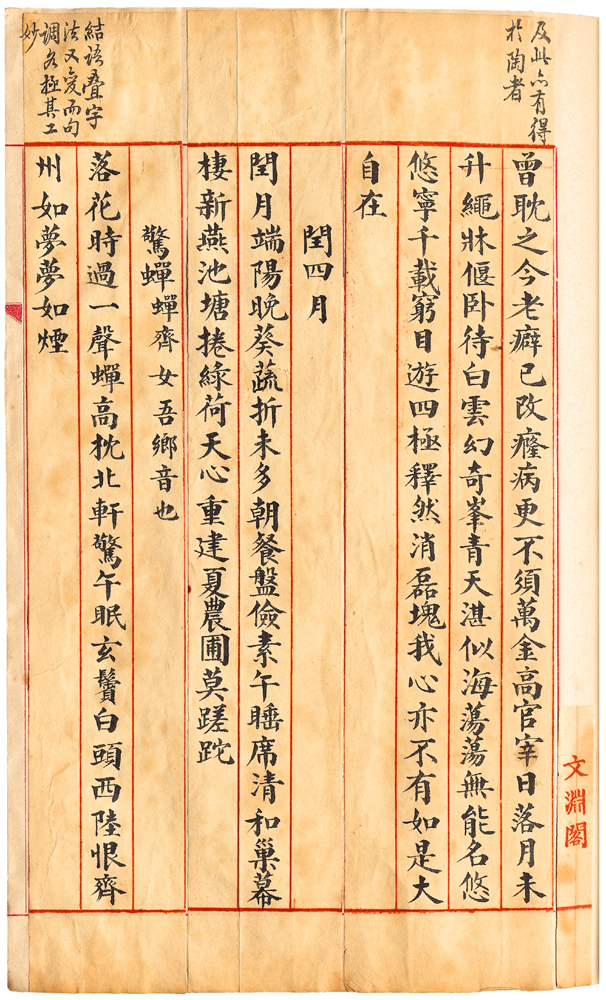 及此亦有得
於陶者
曾耽之今老癖已改癃病更不須萬金高官宰日落月未
升繩牀偃卧待白雲幻奇峯青天湛似海蕩蕩無能名悠
悠寧千載窮目遊四極釋然消磊塊我心亦不有如是大
自在
閏四月
閏月端陽晚葵蔬折未多朝餐盤儉素午睡席清和巢幕
棲新燕池塘捲綠荷天心重建夏農圃莫蹉跎
驚蟬蟬齊女吾鄉音也
落花時過一聲蟬高枕北軒驚午眠玄鬢白頭西陸恨齊
州如夢夢如煙
結語疊字
法又變而句
調名極其工
妙
文淵閣